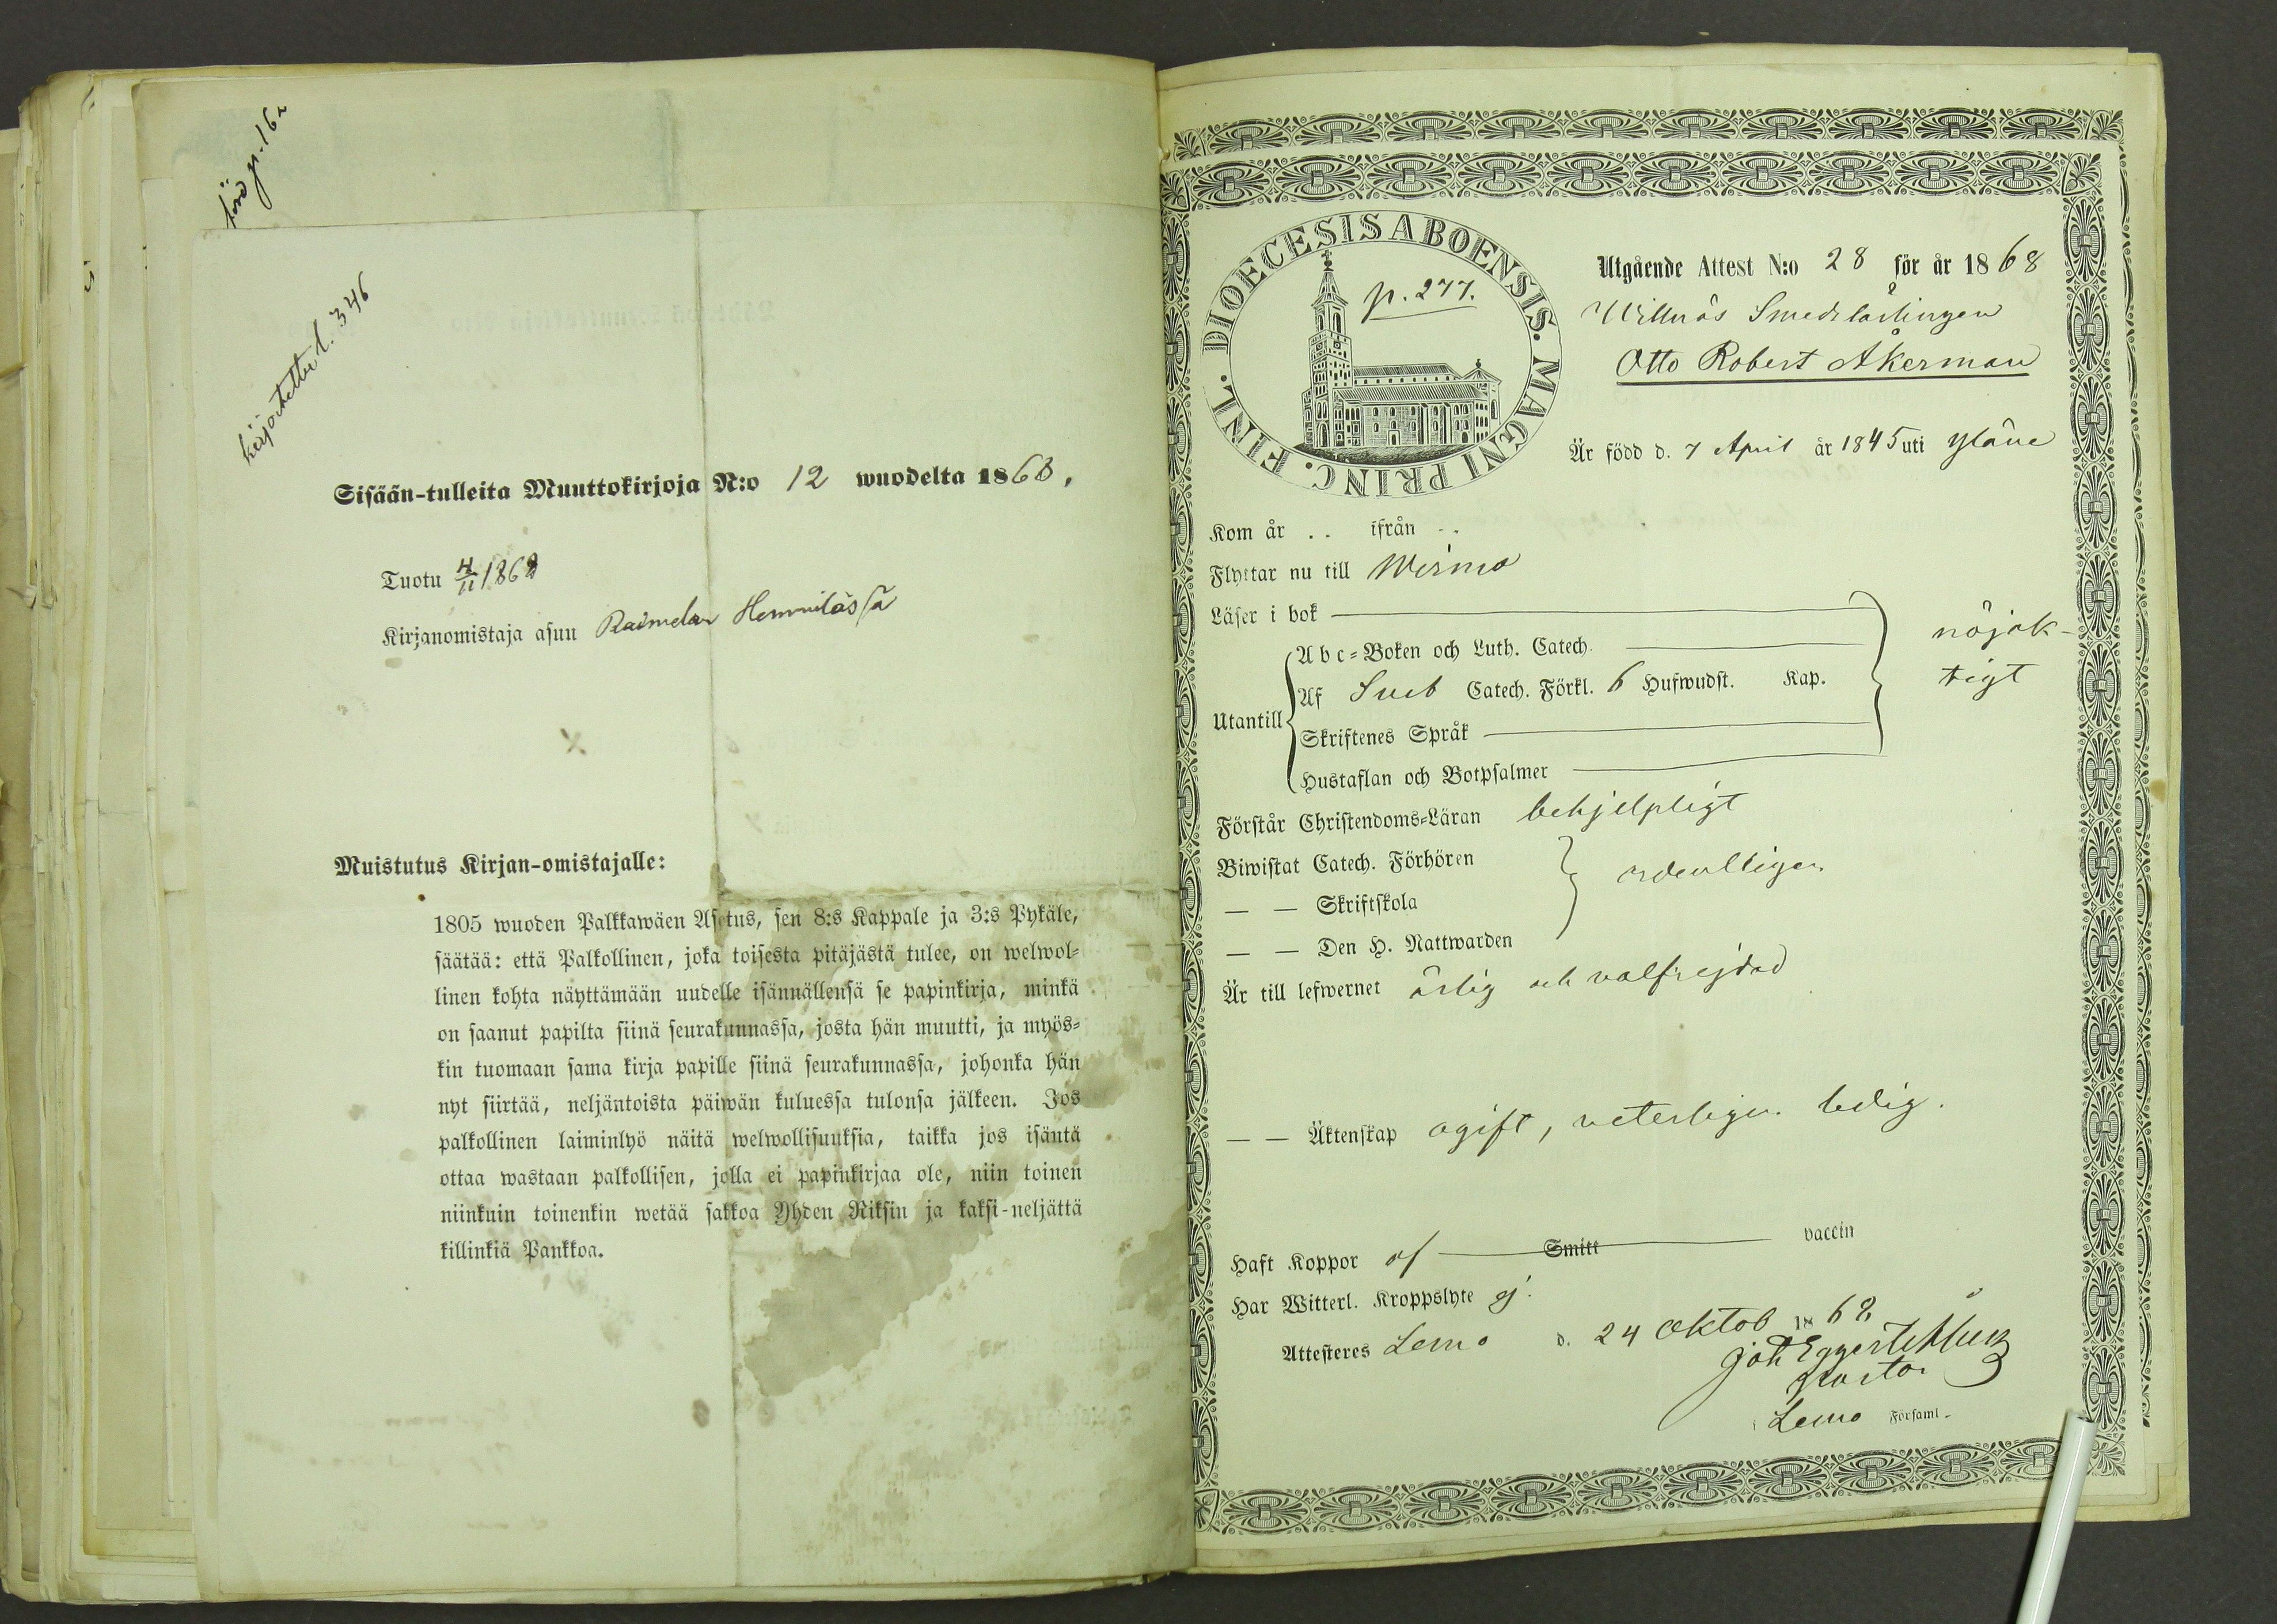 införd p. 162
kirjoitettu l. 346
Sisään-tulleita Muuttokirjoja N:o 12 wuodelta 1868.
Tuotu 4/11 1868
Kirjanomistaja asuu Raimelan Hemmilässä
Muistutus Kirjan-omistajalle:
1805 wuoden Palkkawäen Asetus, sen 8:s Kappale ja 3:s Pykäle,
säätää: että Palkollinen, joka toisesta pitäjästä tulee, on welwol-
linen kohta näyttämään uudelle isännällensä se papinkirja, minkä
on saanut papilta siinä seurakunnassa, josta hän muutti, ja myös-
kin tuomaan sama kirja papille siinä seurakunnassa, johonka hän
nyt siirtää, neljäntoista päiwän kuluessa tulonsa jälkeen. Jos
palkollinen laiminlyö näitä welwollisuuksia, taikka jos isäntä
ottaa wastaan palkollisen, jolla ei papinkirjaa ole, niin toinen
niinkuin toinenkin wetää sakkoa Yhden Riksin ja kaksi-neljättä
killinkiä Pankkoa.
DIOECESIS ABOENSIS. MAGNI PRINC. FINL.
p. 277.
Utgående Attest N:o 28 för år 1868
Willnäs Smedslärlingen
Otto Robert Åkerman
Är född d. 7 April år 1845 uti Yläne
Kom år .. ifrån ..
Flyttar nu till Wirmo
Läser i bok
Abc-Boken och Luth. Catech.
Af Sveb Catech. Förkl. 6 Hufwudst. Kap.
Utantill
Skriftenes Språk
Hustaflan och Botpsalmer
nöjak-
tigt
Förstår Christendoms-Läran behjelpligt
Biwistat Catech. Förhören
— — Skriftskola
ordentligen
— — Den H. Nattwarden
Är till lefwernet ärlig och valfrejdad
— — Äktenskap ogift, veterligen ledig.
Haft Koppor af Smitt vaccin
Har Witterl. Kroppslyte ej.
Attesteres Lemo d. 24 Oktob 1868
Joh Eggert
Pastor
i Lemo Församl.